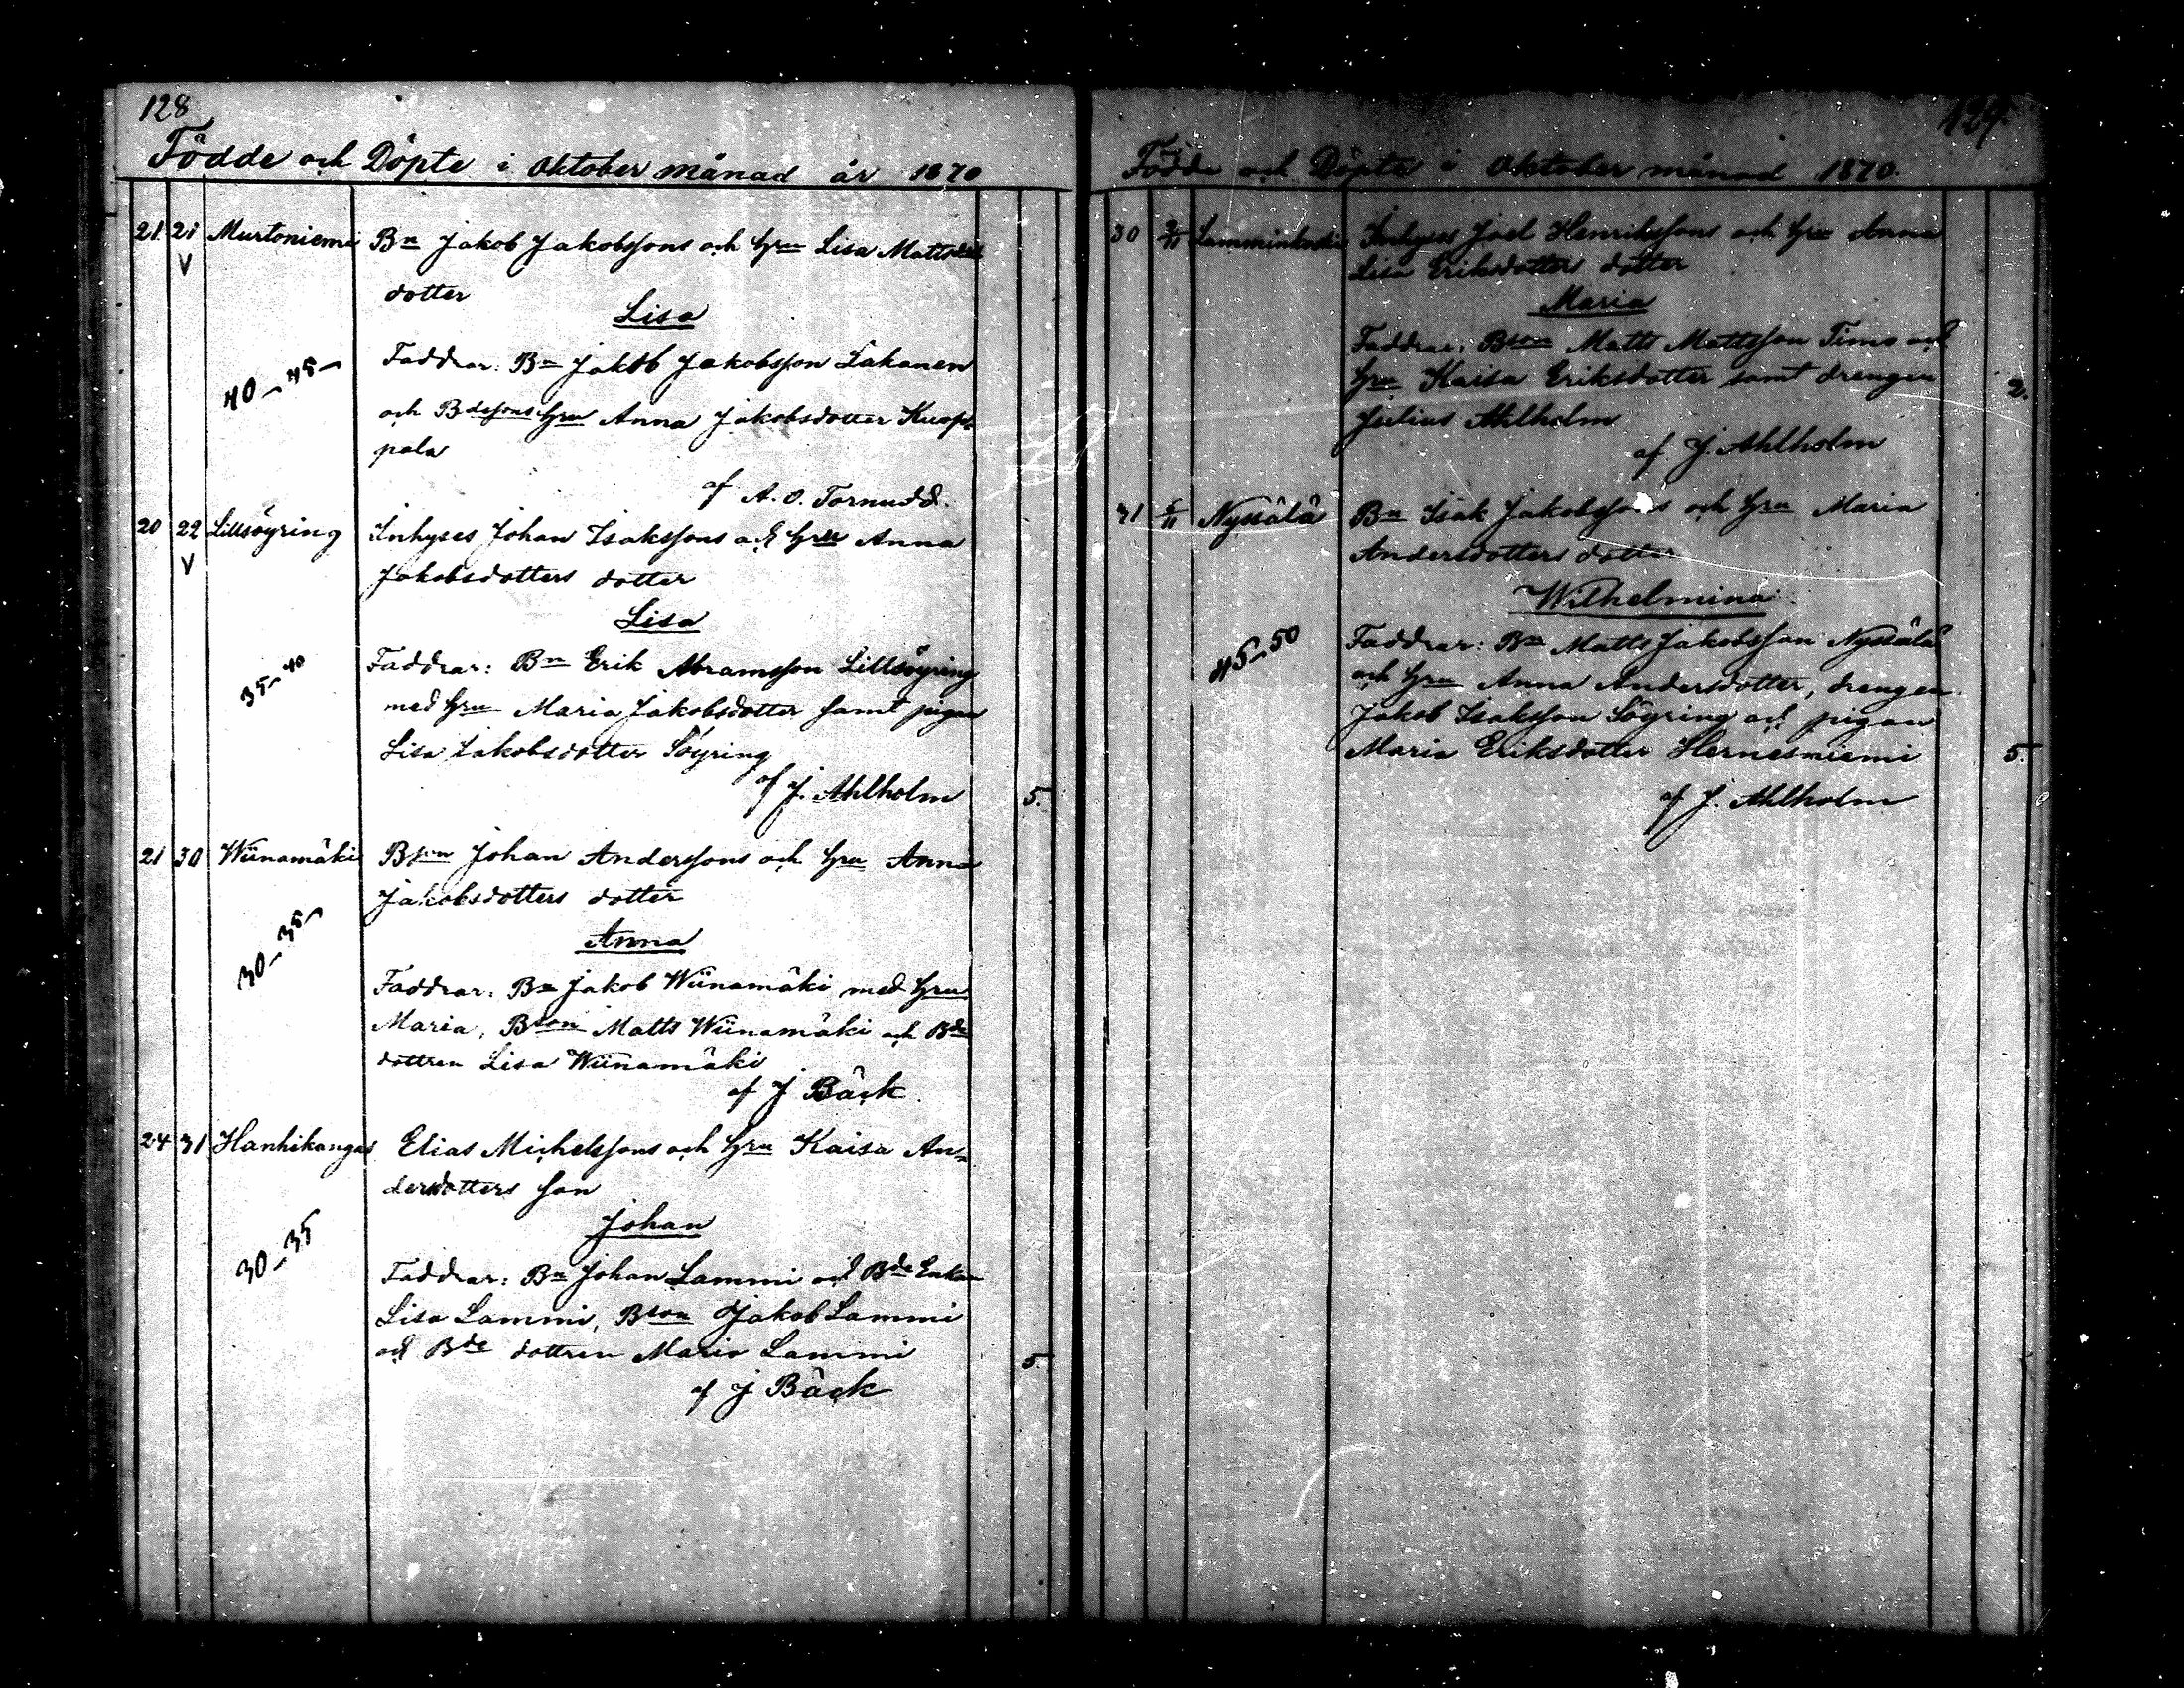 128
Födde och Döpte i Oktober månad år 1870
21 21 Murtoniemi Bn Jakob Jakobssons och hru Lisa Matts
V
dotter
Lisa
40-45-
Faddrar: Bn Jakob Jakobsson Lakanen
och Bdessons hru Anna Jakobsdotter Kuop-
pala
af A. O. Tornudd.
20 22 Lillsöyring Inhyses Johan Isakssons och hru Anna
V
Jakobsdotters dotter
Lisa
35-40
Faddrar: Bn Erik Abramsson Lillsöyring
med hru Maria Jakobsdotter samt pigan
Lisa Jakobsdotter Söyring
af J. Ahlholm 5.
21 30 Wiinamäki Bson Johan Anderssons och hru Anna
Jakobsdotters dotter
30-35-
Anna
Faddrar: Bn Jakob Wiinamäki med hru
Maria, Bson Matts Wiinamäki och Bde
dottren Lisa Wiinamäki
af J Bäck.
24 31 Hanhikangas Elias Michelssons och hru Kaisa An-
dersdotters son
30-35
Johan
Faddrar: Bn Johan Lammi och Bde Enkan
Lisa Lammi, Bson Jakob Lammi
och Bde dottren Maria Lammi 5.
af J Bäck
129.
Födde och Döpte i Oktober månad 1870.
30 Inhyses Joel Henrikssons och hru Anna
Lisa Eriksdotters dotter
Maria
Faddrar: Bson Matts Mattsson Timo och
hru Kaisa Eriksdotter samt drengen 2.
Julius Ahlholm
af J. Ahlholm
31 5/11 Nyssälä Bn Isak Jakobssons och hru Maria
Andersdotters dotter
Wilhelmina
45-50
Faddrar: Bn Matts Jakobsson Nyssälä
och hru Anna Andersdotter, drengen
Jakob Isaksson Söyring och pigan
Maria Eriksdotter Hernesniemi 5.
af J. Ahlholm